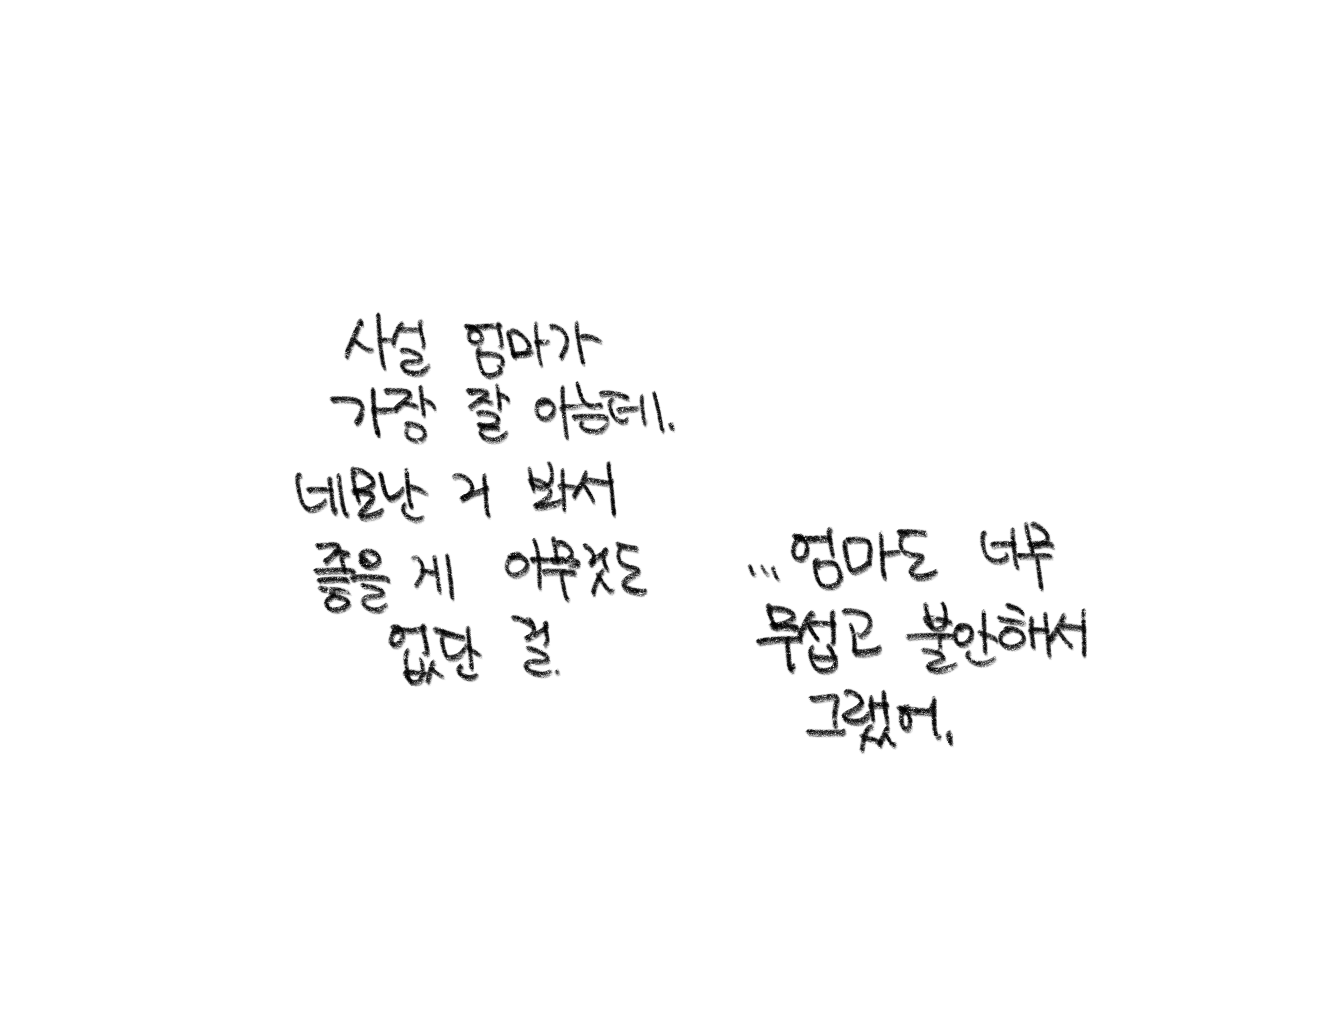 사설 엄마가
가장 잘 아는데.
네모난 거 봐서
좋을 게 아무것도
없단 걸.
...엄마도 너무
무섭고 불안해서
그랬어.